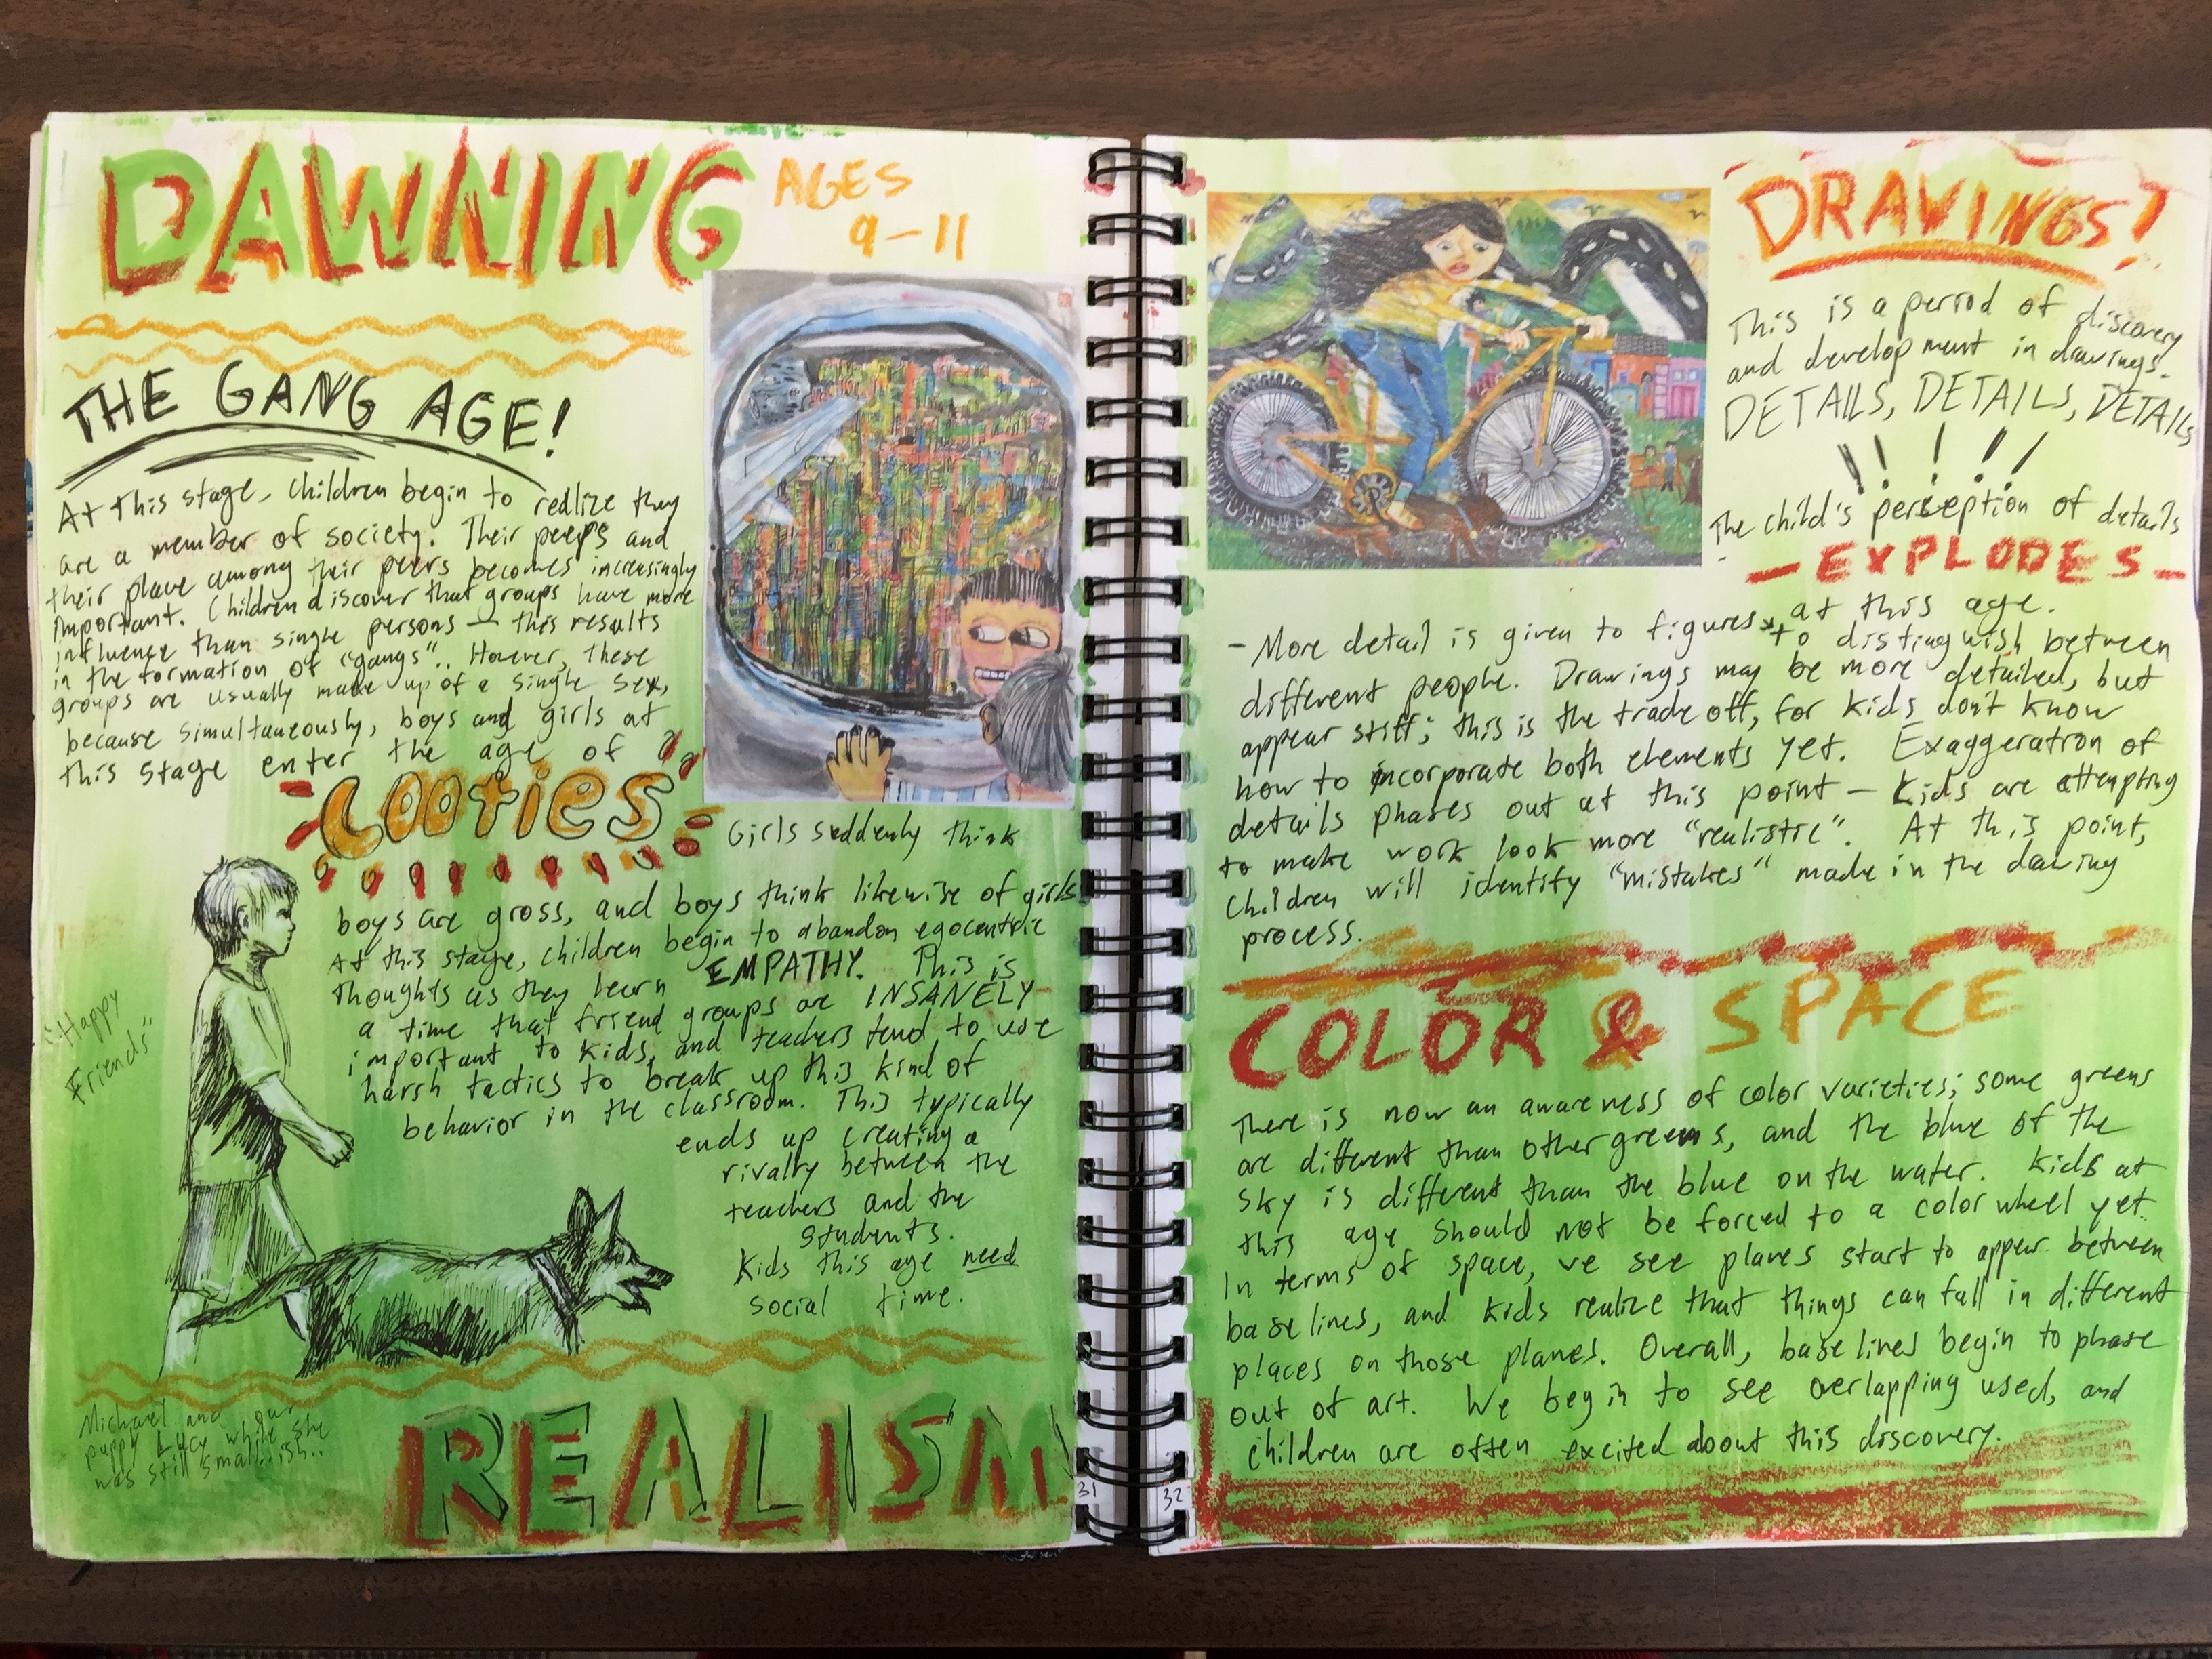 DAWNING
AGES
9-11
THE GANG AGE!
At this stage, children begin to realize they
are a member of society. Their peeps and
their place among their peers becomes increasingly
important. Children discover that groups have more
influence than single persons — this results
in the formation of "gangs".. However, these
groups are usually made up of a single sex,
because simultaneously, boys and girls at
this stage enter the age of
"Cooties"
Girls suddenly think
boys are gross, and boys think likewise of girls.
At this stage, children begin to abandon egocentric
thoughts as they learn EMPATHY. This is
a time that friend groups are INSANELY
important to kids, and teachers tend to use
harsh tactics to break up this kind of
behavior in the classroom. This typically
ends up creating a
rivalry between the
teachers and the
students.
Kids this age need
social time.
"Happy
Friends"
Michael and our
puppy Lucy while she
was still small..ish..
REALISM
31
DRAWINGS!
This is a period of discovery
and development in drawings.
DETAILS, DETAILS, DETAILS
!! ! ! !
The child's perception of details
- EXPLODES -
at this age.
- More detail is given to figures to distinguish between
different people. Drawings may be more detailed, but
appear stiff; this is the trade off, for kids don't know
how to incorporate both elements yet. Exaggeration of
details phases out at this point — kids are attempting
to make work look more "realistic". At this point,
children will identify "mistakes" made in the drawing
process.
COLOR & SPACE
There is now an awareness of color varieties; some greens
are different than other greens, and the blue of the
sky is different than the blue on the water. Kids at
this age should not be forced to a color wheel yet.
In terms of space, we see planes start to appear between
baselines, and kids realize that things can fall in different
places on those planes. Overall, baselines begin to phase
out of art. We begin to see overlapping used, and
children are often excited about this discovery.
32